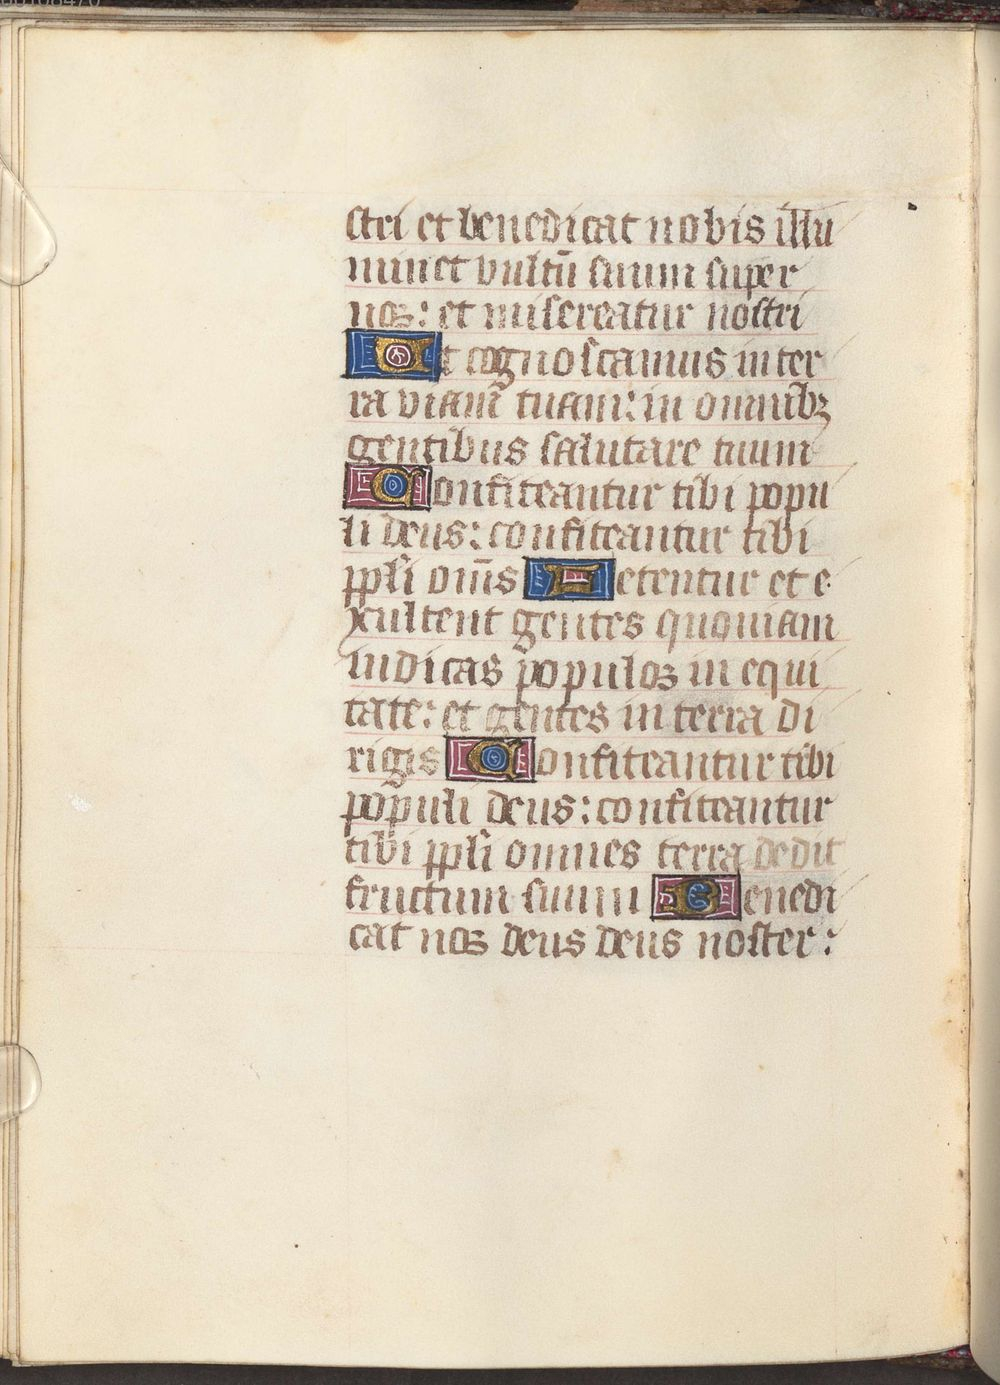 stri et benedicat nobis illu
minet vultū suum super
nos: et misereatur nostri
Ut cognoscamus in ter
ra viam tuam: in omnibꝫ
gentibus salutare tuum
Confiteantur tibi popu
li deus: confiteantur tibi
ppl̄i om̄s Letentur et e
xultent gentes quoniam
iudicas populos in equi
tate: et gentes in terra di
rigis Confiteantur tibi
populi deus: confiteantur
tibi ppl̄i omnes terra dedit
fructum suum Benedi
cat nos deus deus noster: